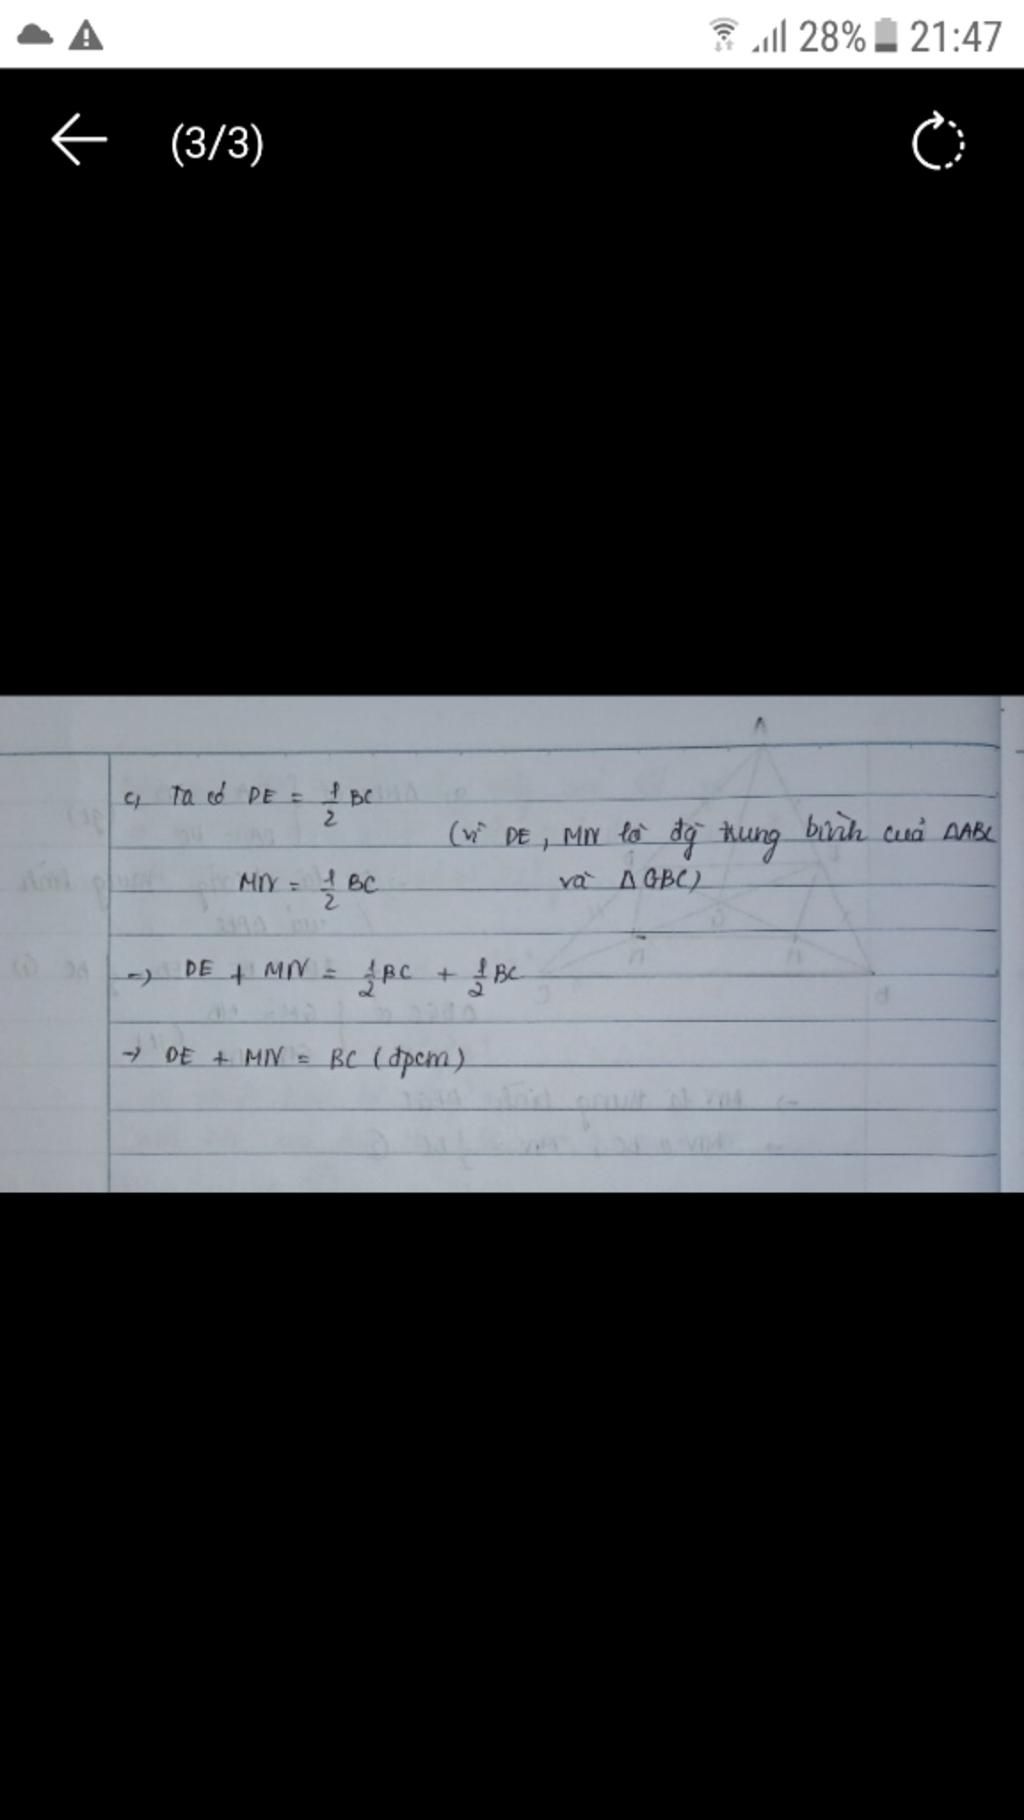 28% 21:47
(3/3)
A
c, Ta có DE = 1/2 BC
(vì DE, MN là đg trung bình của ΔABC
MN = 1/2 BC
và ΔGBC)
→ DE + MN = 1/2 BC + 1/2 BC
→ DE + MN = BC (đpcm)